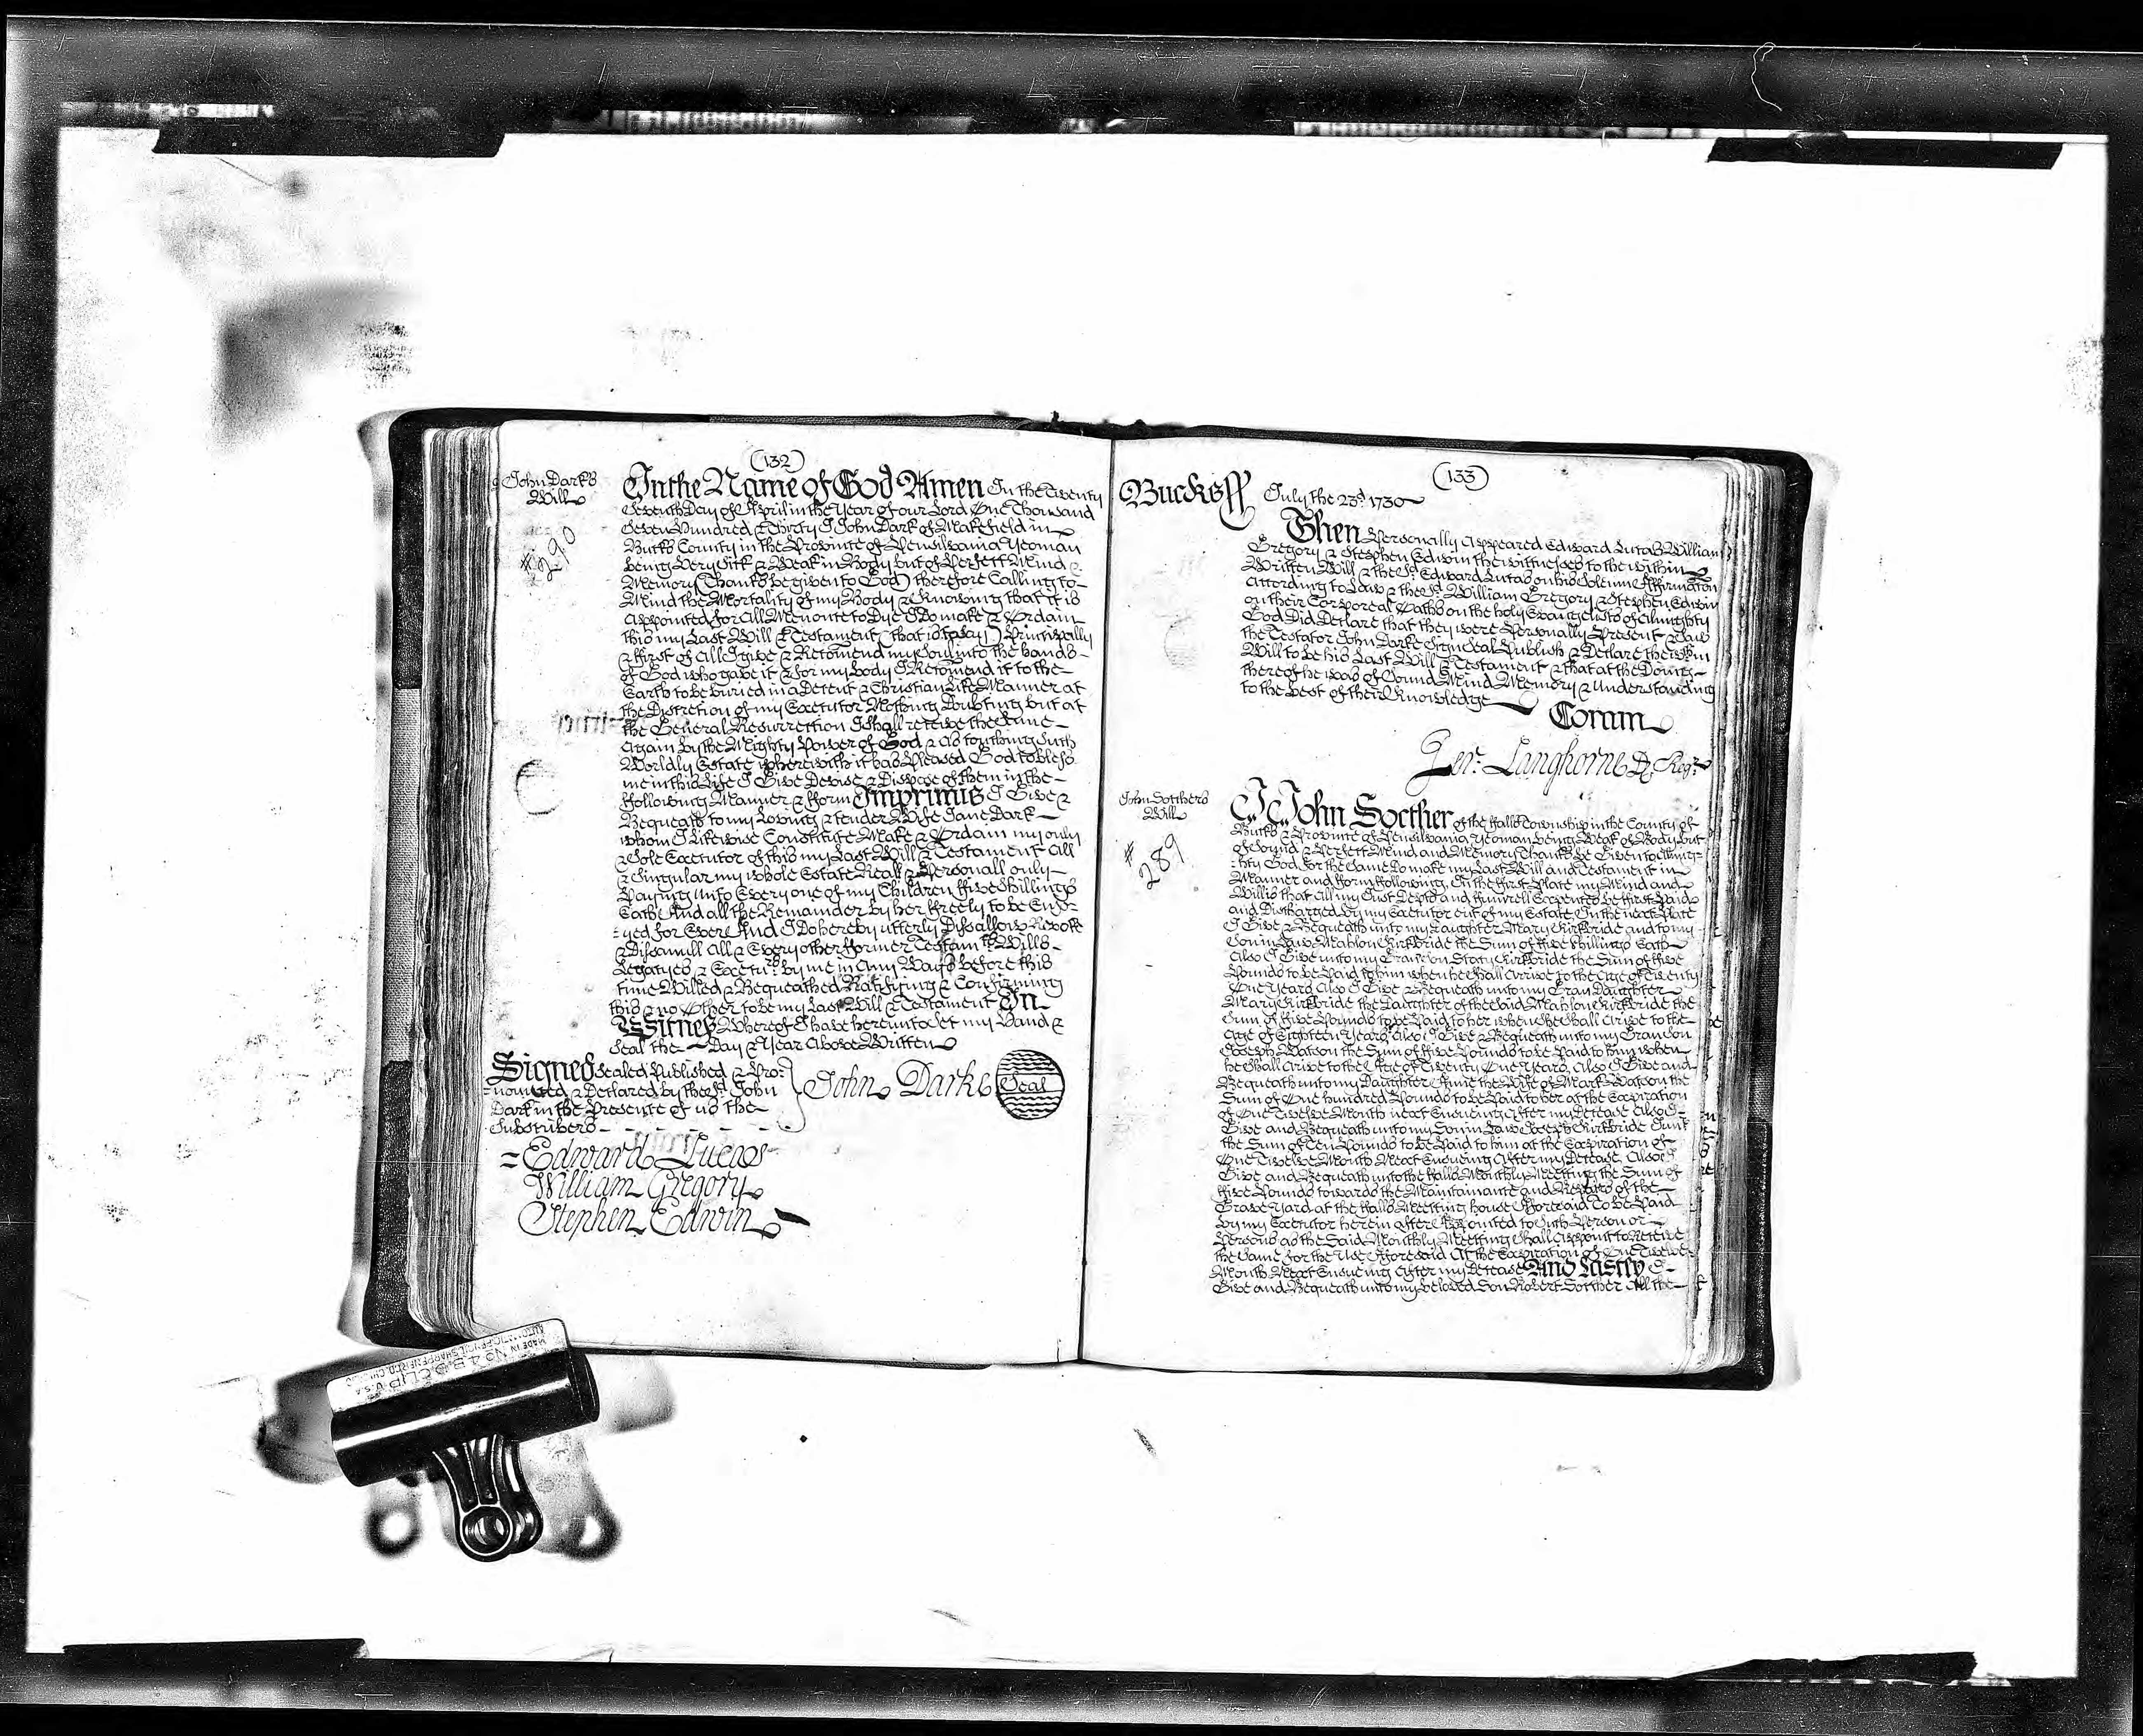 (132)
John Darks
Will
#290
In the Name of God Amen On the Twenty
Seventh Day of April in the Year of our Lord One Thousand
Seven Hundred & Thirty I John Dark of Makefield in
Bucks County in the Province of Pensilvania Yeoman
being Very Sick & Weak in Body but of Perfect Mind &
Memory (Thanks be given to God) therefore Calling to
Mind the Mortality of my Body & Knowing that it is
Appointed for All Men once to Dye I Do make & Ordain
this my Last Will & Testament (that is to say) Principally
& first of All I give & Recomend my Soul into the hands
of God who gave it & for my body I Recomend it to the
Earth to be buried in a Decent & Christian Like Manner at
the Discretion of my Executor Nothing Doubting but at
the General Resurrection I shall receive the Same
Again by the Mighty Power of God & As touching Such
Worldly Estate wherewith it has Pleased God to bless
me in this Life I Give Devise & Dispose of them in the
ffollowing Manner & fform Imprimis I Give &
Bequeath to my Loving & tender Wife Jane Dark
whom I Likewise Constitute Make & Ordain my only
& Sole Executor of this my Last Will & Testament All
& Singular my whole Estate Reall & Personall only
Paying unto Every one of my Children ffive Shillings
Each And all the Remainder by her ffreely to be Enjo=
=yed for Ever And I Do hereby utterly Disallow Revoke
& Disannull All & Every other fformer Testamts Wills
Legacyes & Executrs by me in Any Ways before this
time Willed & Bequeathed Ratifying & Confirming
this & no Other to be my Last Will & Testament In
Witness Whereof I have hereunto Set my Hand &
Seal the Day & Year Above Written
Signed Sealed Published & Pro:
=nounced & Declared by the sd. John
Dark in the Presence of us the
Subscribers
John Darke Seal
=Edward Lucas
William Gregory
Stephen Edwin
(133)
Bucks ss July the 23d. 1730
Then Personally Appeared Edward Lucas William
Gregory & Stephen Edwin the witnesses to the within
Written Will & the sd. Edward Lucas on his Solemn Affirmation
According to Law & the sd. William Gregory & Stephen Edwin
on their Corporeal Oaths on the holy Evangelists of Almighty
God Did Declare that they were Personally Present & Saw
the Testator John Darke Sign Seal Publish & Declare the within
Will to be his Last Will & Testament & that at the Doing
thereof he was of Sound Mind Memory & Understanding
to the best of their Knowledge
Coram
Jer. Langhorne D. Regr.
John Sotchers
Will
#289
I John Sotcher of the ffalls Township in the County of
Bucks & Province of Pensilvania Yeoman being Weak of Body but
of Sound & Perfect Mind and Memory Thanks be Given to Almig=
=hty God for the Same Do make my Last Will and Testament in
Manner and fform ffollowing, In the ffirst Place my Mind and
Will is that All my Just Depts and ffunerall Expences be ffirst Paid
and Discharged by my Executor out of my Estate, In the next Place
I Give & Bequeath unto my Daughter Mary Kirkbride and to my
Son in Law Mahlon Kirkbride the Sum of ffive Shillings Each
Also I Give unto my Grandson Stacy Kirkbride the Sum of ffive
Pounds to be Paid to him when he Shall Arrive to the Age of Twenty
One Years, Also I Give & Bequeath unto my Gran Daughter
Mary Kirkbride the Daughter of the said Mahlon Kirkbride the
Sum of ffive Pounds to be Paid to her when She Shall Arive to the
Age of Eighteen Years, Also I Give & Bequeath unto my Grandson
Joseph Watson the Sum of ffive Pounds to be Paid to him when
he Shall Arive to the Age of Twenty One Years, Also I Give and
Bequeath unto my Daughter Anne the Wife of Mark Watson the
Sum of One hundred Pounds to be Paid to her at the Expiration
of One Twelve Month next Ensueing After my Decease Also I
Give and Bequeath unto my Son in Law Joseph Kirkbride Junr
the Sum of Ten Pounds to be Paid to him at the Expiration of
One Twelve Month Next Ensueing After my Decease, Also I
Give and Bequeath unto the ffalls Monthly Meeting the Sum of
ffive Pounds towards the Maintainance and Repairs of the
Grave Yard at the ffalls Meeting house Afforesaid To be Paid
by my Executor herein after Appointed to Such Person or
Persons as the Said Monthly Meeting Shall Appoint to Receive
the Same for the Use Afforesaid At the Expiration of One Twelve
Month Next Ensueing After my Decease And Lastly I
Give and Bequeath unto my beloved Son Robert Sotcher All the